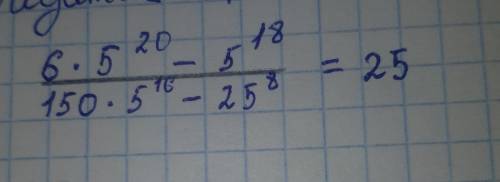 6 · 5^20 − 5^18 / 150 · 5^16 − 25^8 = 25